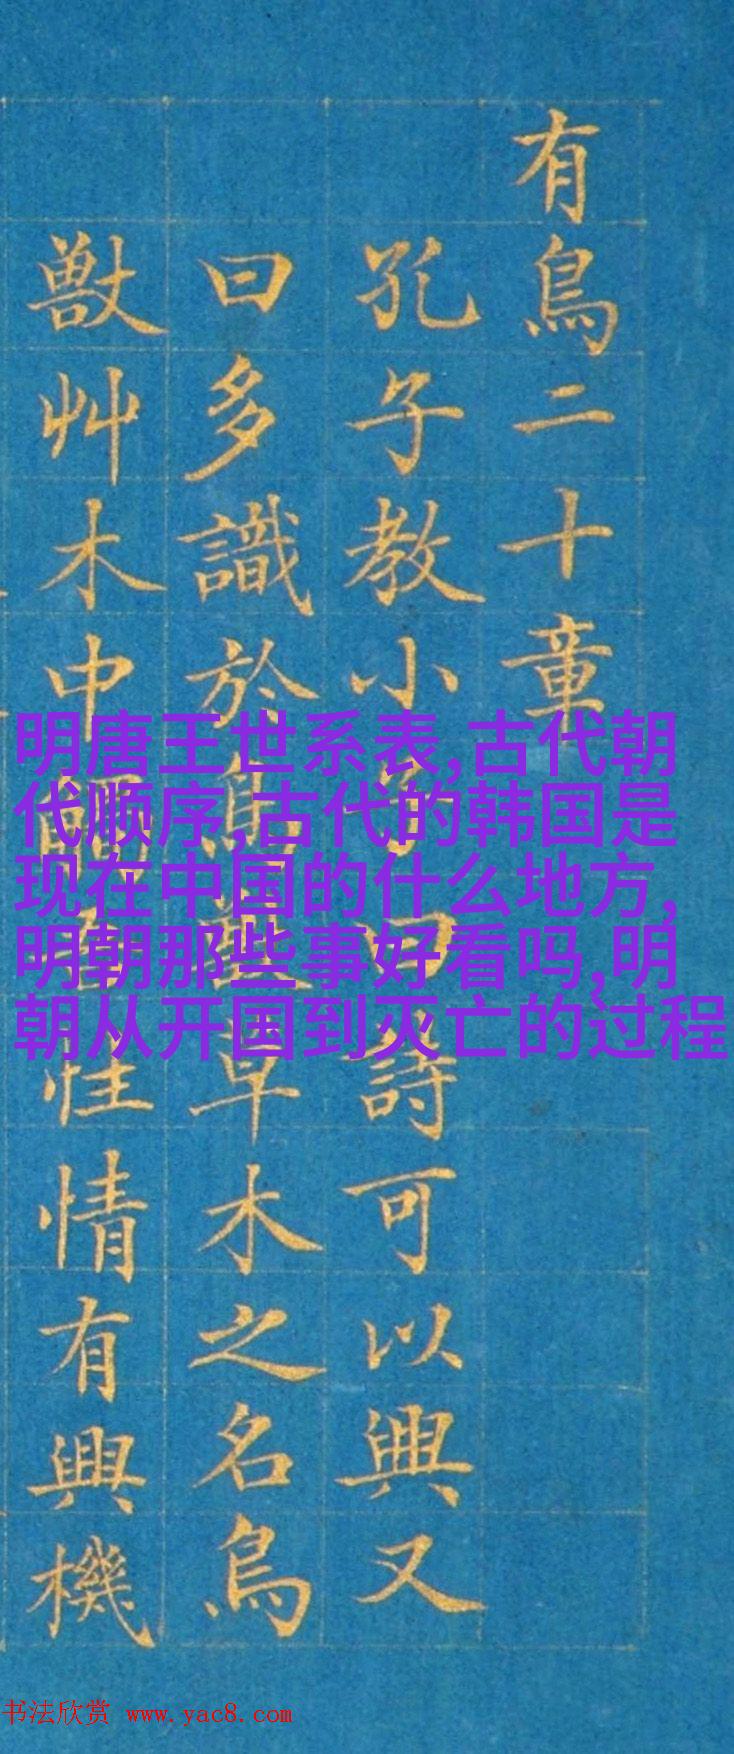 有鳥二十章
孔子教小子曰詩可以興又
曰多識於鳥獸草木之名鳥
獸艸木中性情有興機
明唐王世系表,古代朝
代顺序,古代的韩国是
现在中国的什么地方,
明朝那些事好看吗,明
朝从开国到灭亡的过程
书法欣赏 www.yac8.com